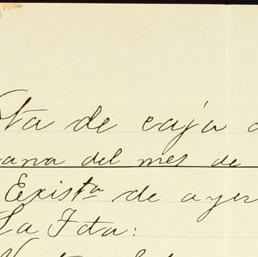 ta de caja
ana del mes de
Exist.ª de ayer
La Fda: